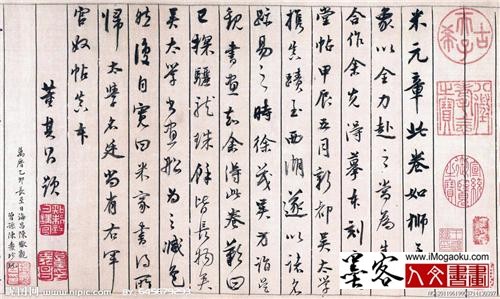 米元章此卷如獅
象以全力赴之當為生
合作余先得摹本刻
堂帖甲辰五月新都吳太學
攜真蹟至西湖遂以諸名
蹟易之時徐茂吳方詣吳
觀書畫知余得此卷歎曰
已探驪龍珠餘皆長物矣
吳太學書畫船為之減色
然復自寬曰米家書得所
歸太學名廷尚有右軍
官奴帖真本
董其昌題
萬曆乙卯長至日海昌陳觀
曾孫陳
古希天子
墨客
www.iMogaoku.com
人文書畫